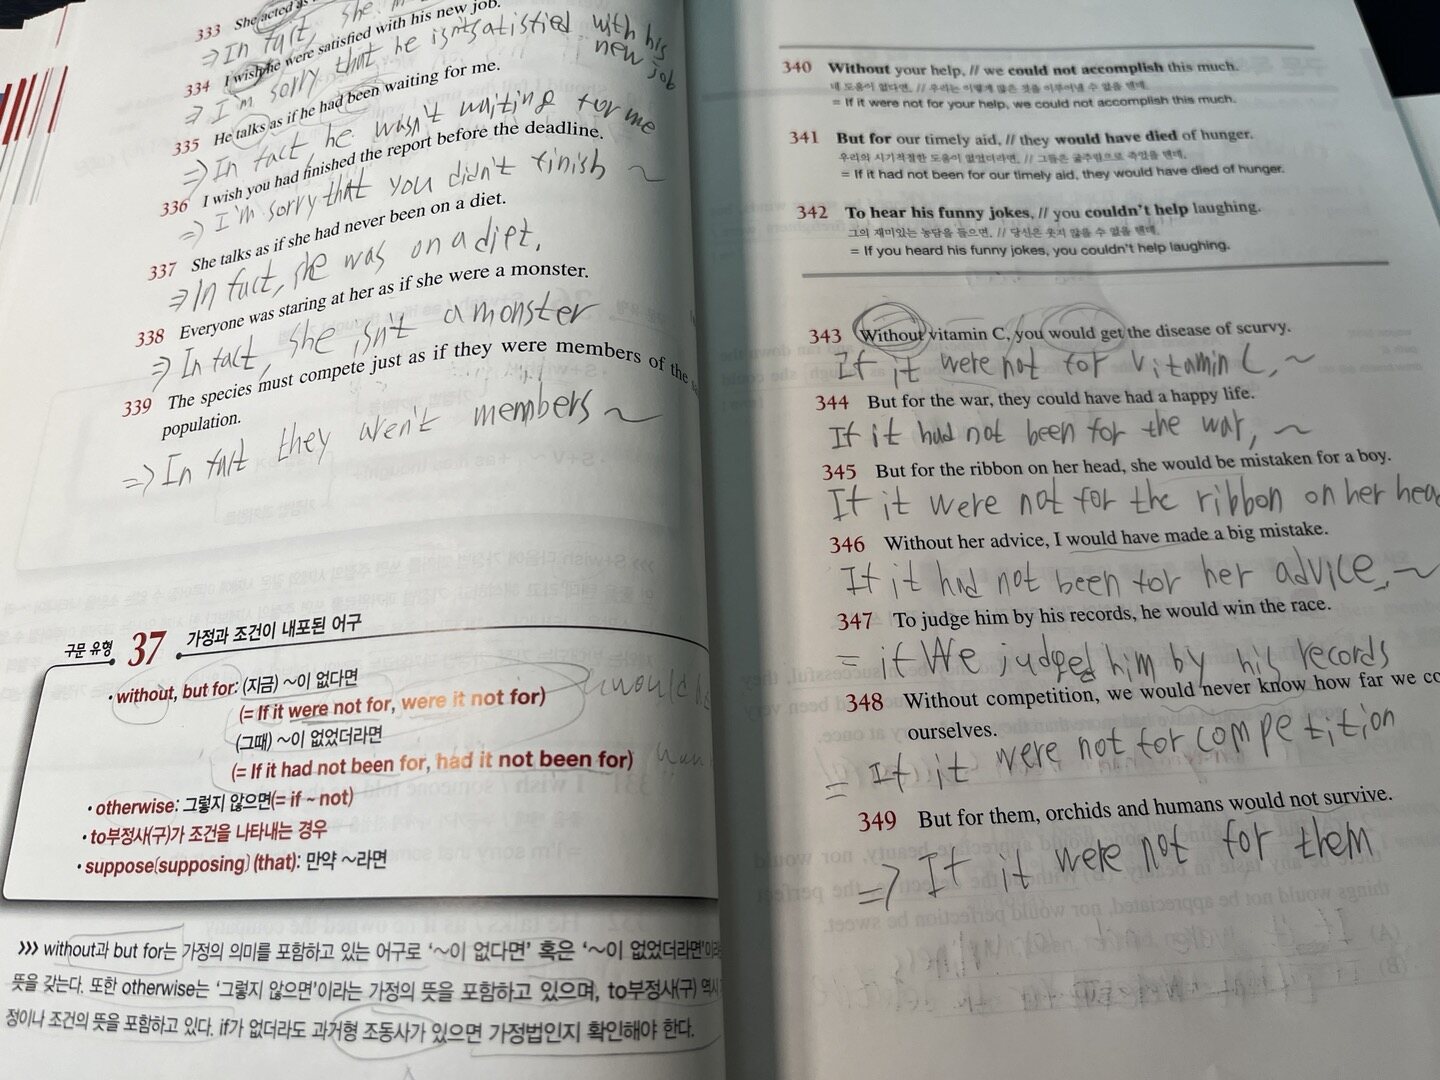 333 She acted as
⇒ In fact, she
334 I wish he were satisfied with his new job.
⇒ I'm sorry that he isn't satisfied with his
new job
335 He talks as if he had been waiting for me.
⇒ In fact he wasn't waiting for me
336 I wish you had finished the report before the deadline.
⇒ I'm sorry that you didn't finish ~
337 She talks as if she had never been on a diet.
⇒ In fact, she was on a diet.
338 Everyone was staring at her as if she were a monster.
⇒ In fact, she isn't a monster
339 The species must compete just as if they were members of the
population.
⇒ In fact they aren't members ~
구문 유형 37 가정과 조건이 내포된 어구
• without, but for: (지금) ~이 없다면
(= If it were not for, were it not for)
would
(그때) ~이 없었더라면
(= If it had not been for, had it not been for)
• otherwise: 그렇지 않으면(= if ~ not)
• to부정사(구)가 조건을 나타내는 경우
• suppose(supposing) (that): 만약 ~라면
>>> without과 but for는 가정의 의미를 포함하고 있는 어구로 '~이 없다면' 혹은 '~이 없었더라면'이
뜻을 갖는다. 또한 otherwise는 '그렇지 않으면'이라는 가정의 뜻을 포함하고 있으며, to부정사(구) 역시
정이나 조건의 뜻을 포함하고 있다. if가 없더라도 과거형 조동사가 있으면 가정법인지 확인해야 한다.
340 Without your help, // we could not accomplish this much.
네 도움이 없다면, // 우리는 이렇게 많은 것을 이루어낼 수 없을 텐데.
= If it were not for your help, we could not accomplish this much.
341 But for our timely aid, // they would have died of hunger.
우리의 시기적절한 도움이 없었더라면, // 그들은 굶주림으로 죽었을 텐데.
= If it had not been for our timely aid, they would have died of hunger.
342 To hear his funny jokes, // you couldn't help laughing.
그의 재미있는 농담을 들으면, // 당신은 웃지 않을 수 없을 텐데.
= If you heard his funny jokes, you couldn't help laughing.
343 Without vitamin C, you would get the disease of scurvy.
If it were not for vitamin C, ~
344 But for the war, they could have had a happy life.
If it had not been for the war, ~
345 But for the ribbon on her head, she would be mistaken for a boy.
If it were not for the ribbon on her hea
346 Without her advice, I would have made a big mistake.
If it had not been for her advice, ~
347 To judge him by his records, he would win the race.
= if We judged him by his records
348 Without competition, we would never know how far we co
ourselves.
= If it were not for competition
349 But for them, orchids and humans would not survive.
⇒ If it were not for them